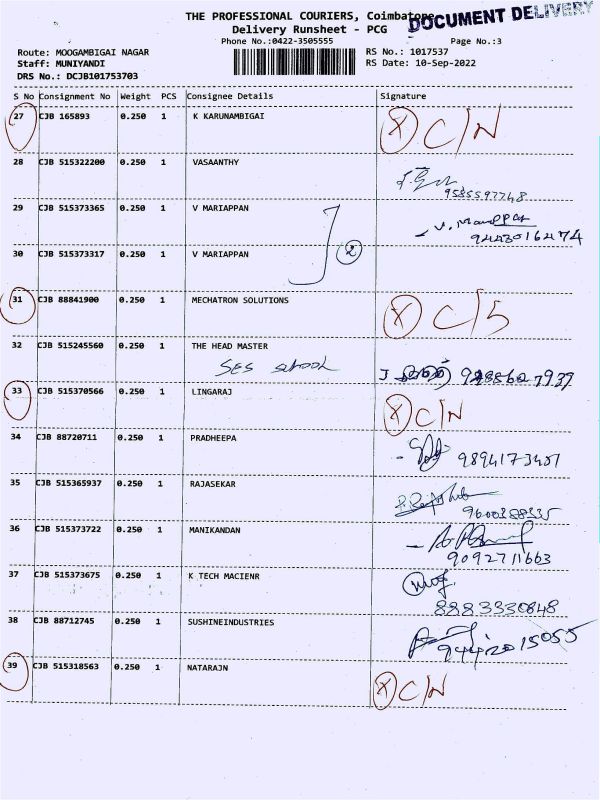 THE PROFESSIONAL COURIERS, Coimbatore
DOCUMENT DELIVERY
Delivery Runsheet - PCG
Phone No.:0422-3505555 Page No.:3
Route: MOOGAMBIGAI NAGAR RS No.: 1017537
Staff: MUNIYANDI RS Date: 10-Sep-2022
DRS No.: DCJB101753703
S No Consignment No Weight PCS Consignee Details Signature
27 CJB 165893 0.250 1 K KARUNAMBIGAI X C/N
28 CJB 515322200 0.250 1 VASAANTHY
9585597748
29 CJB 515373365 0.250 1 V MARIAPPAN V. Mariappan
9443016474
30 CJB 515373317 0.250 1 V MARIAPPAN 2
31 CJB 88841900 0.250 1 MECHATRON SOLUTIONS X C/S
32 CJB 515245560 0.250 1 THE HEAD MASTER
SES school
33 CJB 515370566 0.250 1 LINGARAJ X C/N
34 CJB 88720711 0.250 1 PRADHEEPA
9894173401
35 CJB 515365937 0.250 1 RAJASEKAR
36 CJB 515373722 0.250 1 MANIKANDAN
9092711663
37 CJB 515373675 0.250 1 K TECH MACIENR
8883330848
38 CJB 88712745 0.250 1 SUSHINEINDUSTRIES
9442015055
39 CJB 515318563 0.250 1 NATARAJN X C/N